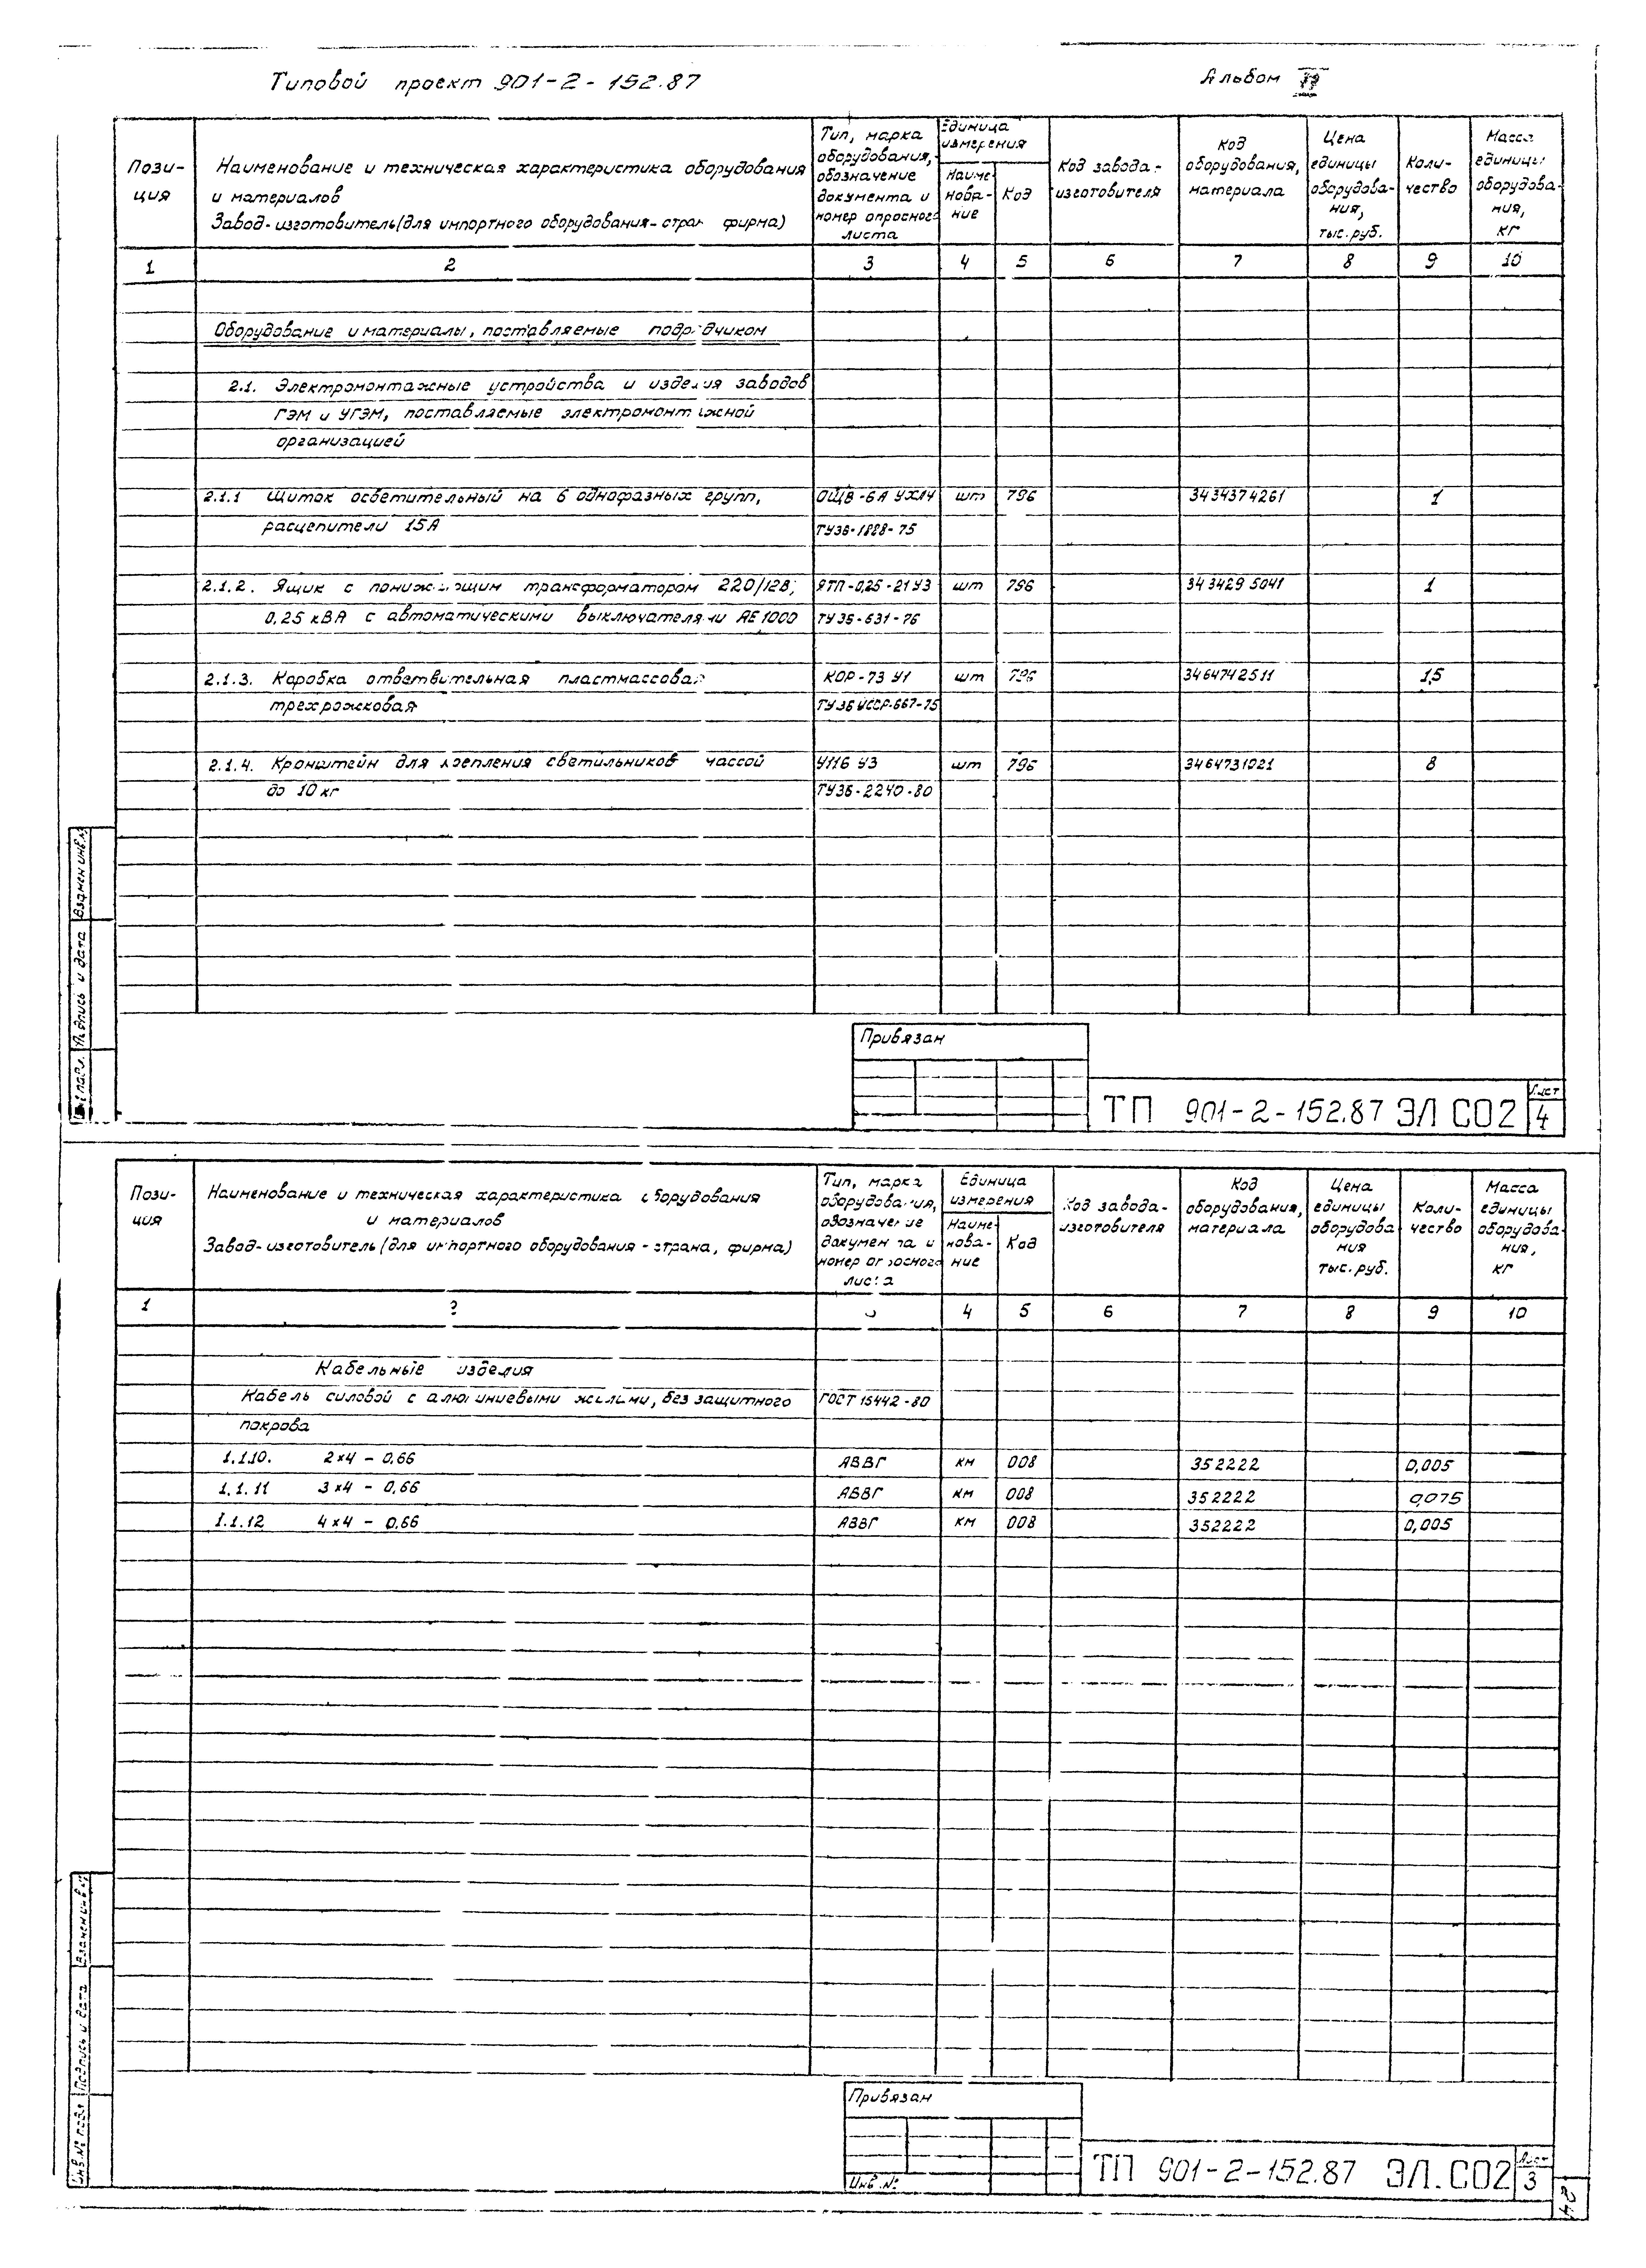 Типовой проект 901-2-152.87
Альбом
Пози-
ция
Наименование и техническая характеристика оборудования
и материалов
Завод-изготовитель (для импортного оборудования - стран фирма)
Тип, марка
оборудования,
обозначение
документа и
номер опросного
листа
Единица
измерения
Наиме-
нова-
ние
Код
Код завода-
изготовителя
Код
оборудования,
материала
Цена
единицы
оборудова-
ния,
тыс. руб.
Коли-
чество
Масса
единицы
оборудова-
ния,
кг
1 2 3 4 5 6 7 8 9 10
Оборудование и материалы, поставляемые подрядчиком
2.1. Электромонтажные устройства и изделия заводов
ГЭМ и УГЭМ, поставляемые электромонтажной
организацией
2.1.1 Щиток осветительный на 6 однофазных групп, ОЩВ-6А УХЛ4 шт 796 3434374261 1
расцепители 15А ТУ36-1888-75
2.1.2. Ящик с понижающим трансформатором 220/12В; ЯТП-0,25-21У3 шт 796 3434295041 1
0,25 кВА с автоматическими выключателями АЕ1000 ТУ36-631-76
2.1.3. Коробка ответвительная пластмассовая КОР-73 У1 шт 796 3464742511 15
трехрожковая ТУ36 УССР-667-75
2.1.4. Кронштейн для крепления светильников массой У116 У3 шт 796 3464731021 8
до 10 кг ТУ36-2240-80
Взамен инв.№
Подпись и дата
Инв.№ подл.
Привязан
ТП 901-2-152.87 ЭЛ СО2
Лист
4
Пози-
ция
Наименование и техническая характеристика оборудования
и материалов
Завод-изготовитель (для импортного оборудования - страна, фирма)
Тип, марка
оборудования,
обозначение
документа и
номер опросного
листа
Единица
измерения
Наиме-
нова-
ние
Код
Код завода-
изготовителя
Код
оборудования,
материала
Цена
единицы
оборудова
ния
тыс. руб.
Коли-
чество
Масса
единицы
оборудова-
ния,
кг
1 2 3 4 5 6 7 8 9 10
Кабельные изделия
Кабель силовой с алюминиевыми жилами, без защитного ГОСТ 16442-80
покрова
1.1.10. 2х4 - 0,66 АВВГ км 008 352222 0,005
1.1.11 3х4 - 0,66 АВВГ км 008 352222 0,075
1.1.12 4х4 - 0,66 АВВГ км 008 352222 0,005
Взамен инв.№
Подпись и дата
Инв.№ подл
Привязан
Инв.№
ТП 901-2-152.87 ЭЛ.СО2
Лист
3